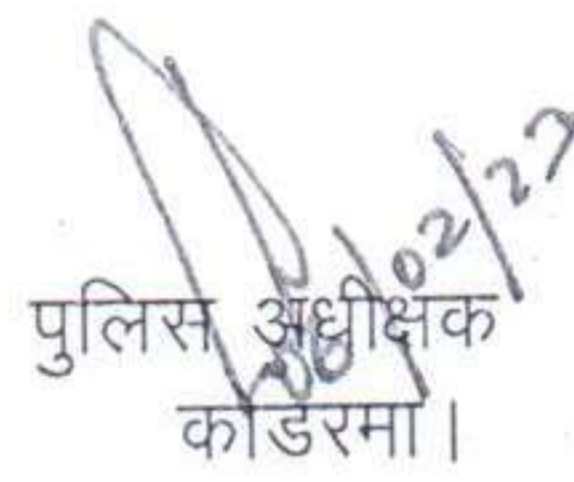 02/23
पुलिस अधीक्षक
कोडरमा।